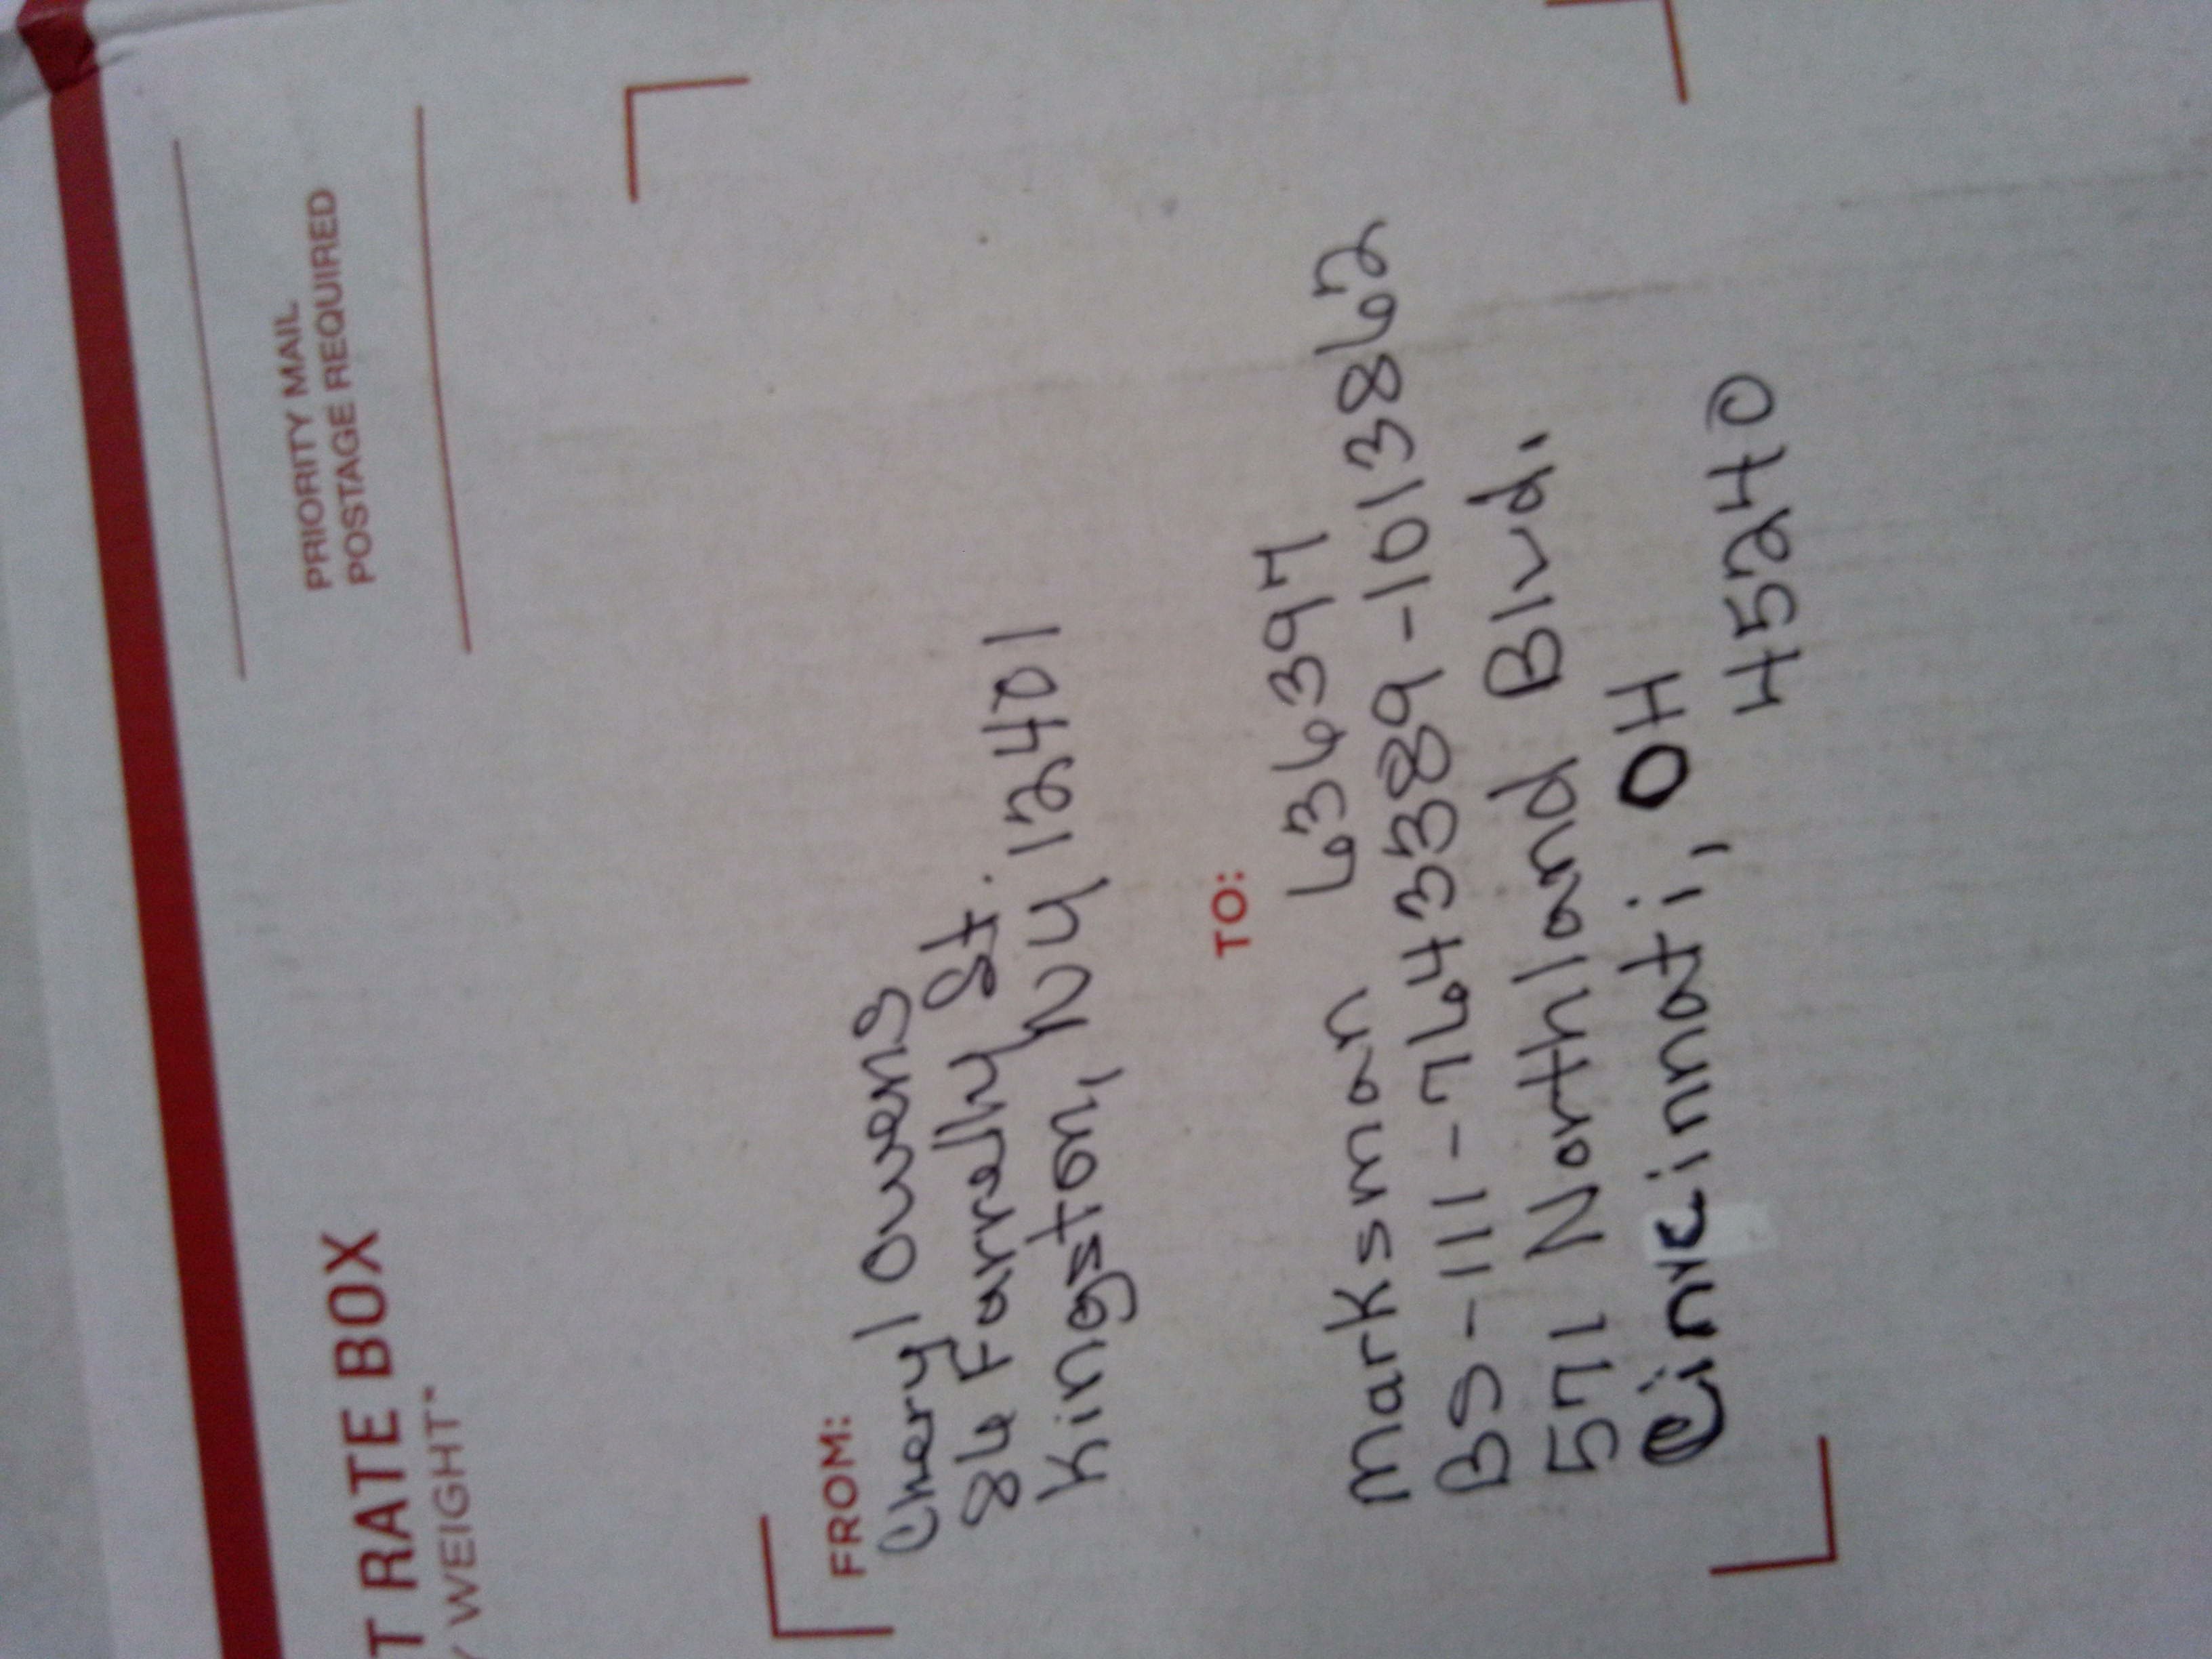 T RATE BOX
WEIGHT
PRIORITY MAIL
POSTAGE REQUIRED
FROM:
Cheryl Owens
84 Farrelly St.
Kingston, NY 12401
TO:
Marksman 636394
BS-111-7643389-1013862
571 Northland Blvd.
Cincinnati, OH
45240